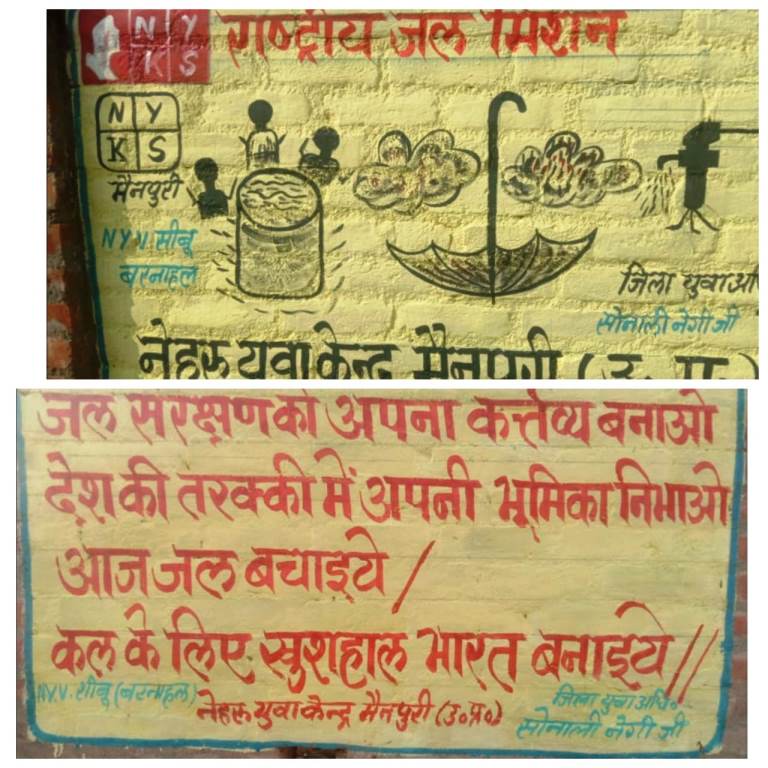 N Y
K S
राष्ट्रीय जल मिशन
N Y
K S
मैनपुरी
N Y V सीबू
बरनाहल
जिला युवा अधि
सोनाली नेगी जी
नेहरू युवा केन्द्र मैनपुरी (उ. प्र.)
जल संरक्षण को अपना कर्त्तव्य बनाओ
देश की तरक्की में अपनी भूमिका निभाओ
आज जल बचाइये /
कल के लिए खुशहाल भारत बनाइये //
N.Y.V. शीबू (बरनाहल)
नेहरू युवा केन्द्र मैनपुरी (उ०प्र०)
जिला युवा अधि०
सोनाली नेगी जी